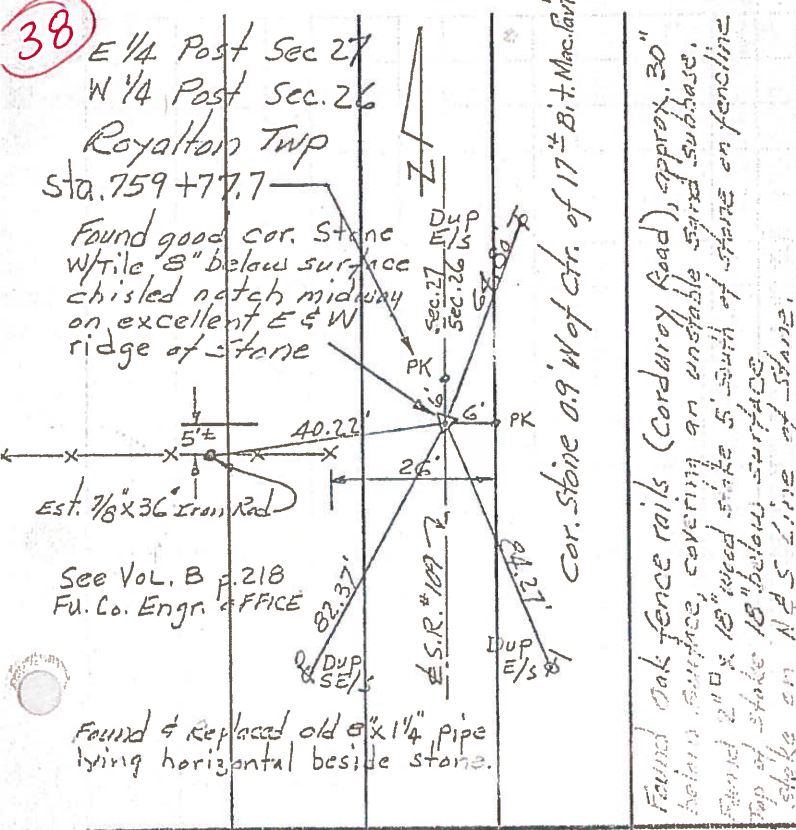 38
E 1/4 Post Sec 27
W 1/4 Post Sec. 26
Royalton Twp
Sta. 759+77.7
Found good cor. Stone
W/Tile 8" below surface
chisled notch midway
on excellent E & W
ridge of Stone
N
Dup
E/S
Sec. 27
Sec. 26
PK
6'
6'
PK
5'±
40.22'
26'
Est. 7/8"x36" Iron Rod
See Vol. B p.218
Fu. Co. Engr. OFFICE
82.37'
Dup
SE/S
S.R. #109
Dup
E/S
Found & Replaced old 8"x1 1/4" pipe
lying horizontal beside stone.
Cor. Stone 0.9' W of Ctr. of 17'± Bit. Mac.
Found Oak fence rails (Corduroy Road), approx. 30"
below surface, covering an unstable sand subbase.
Found 2"□ x 18" wood stake 5' south of stone on fencline
Top of stake 18" below surface
stake on N & S Line of Stone.